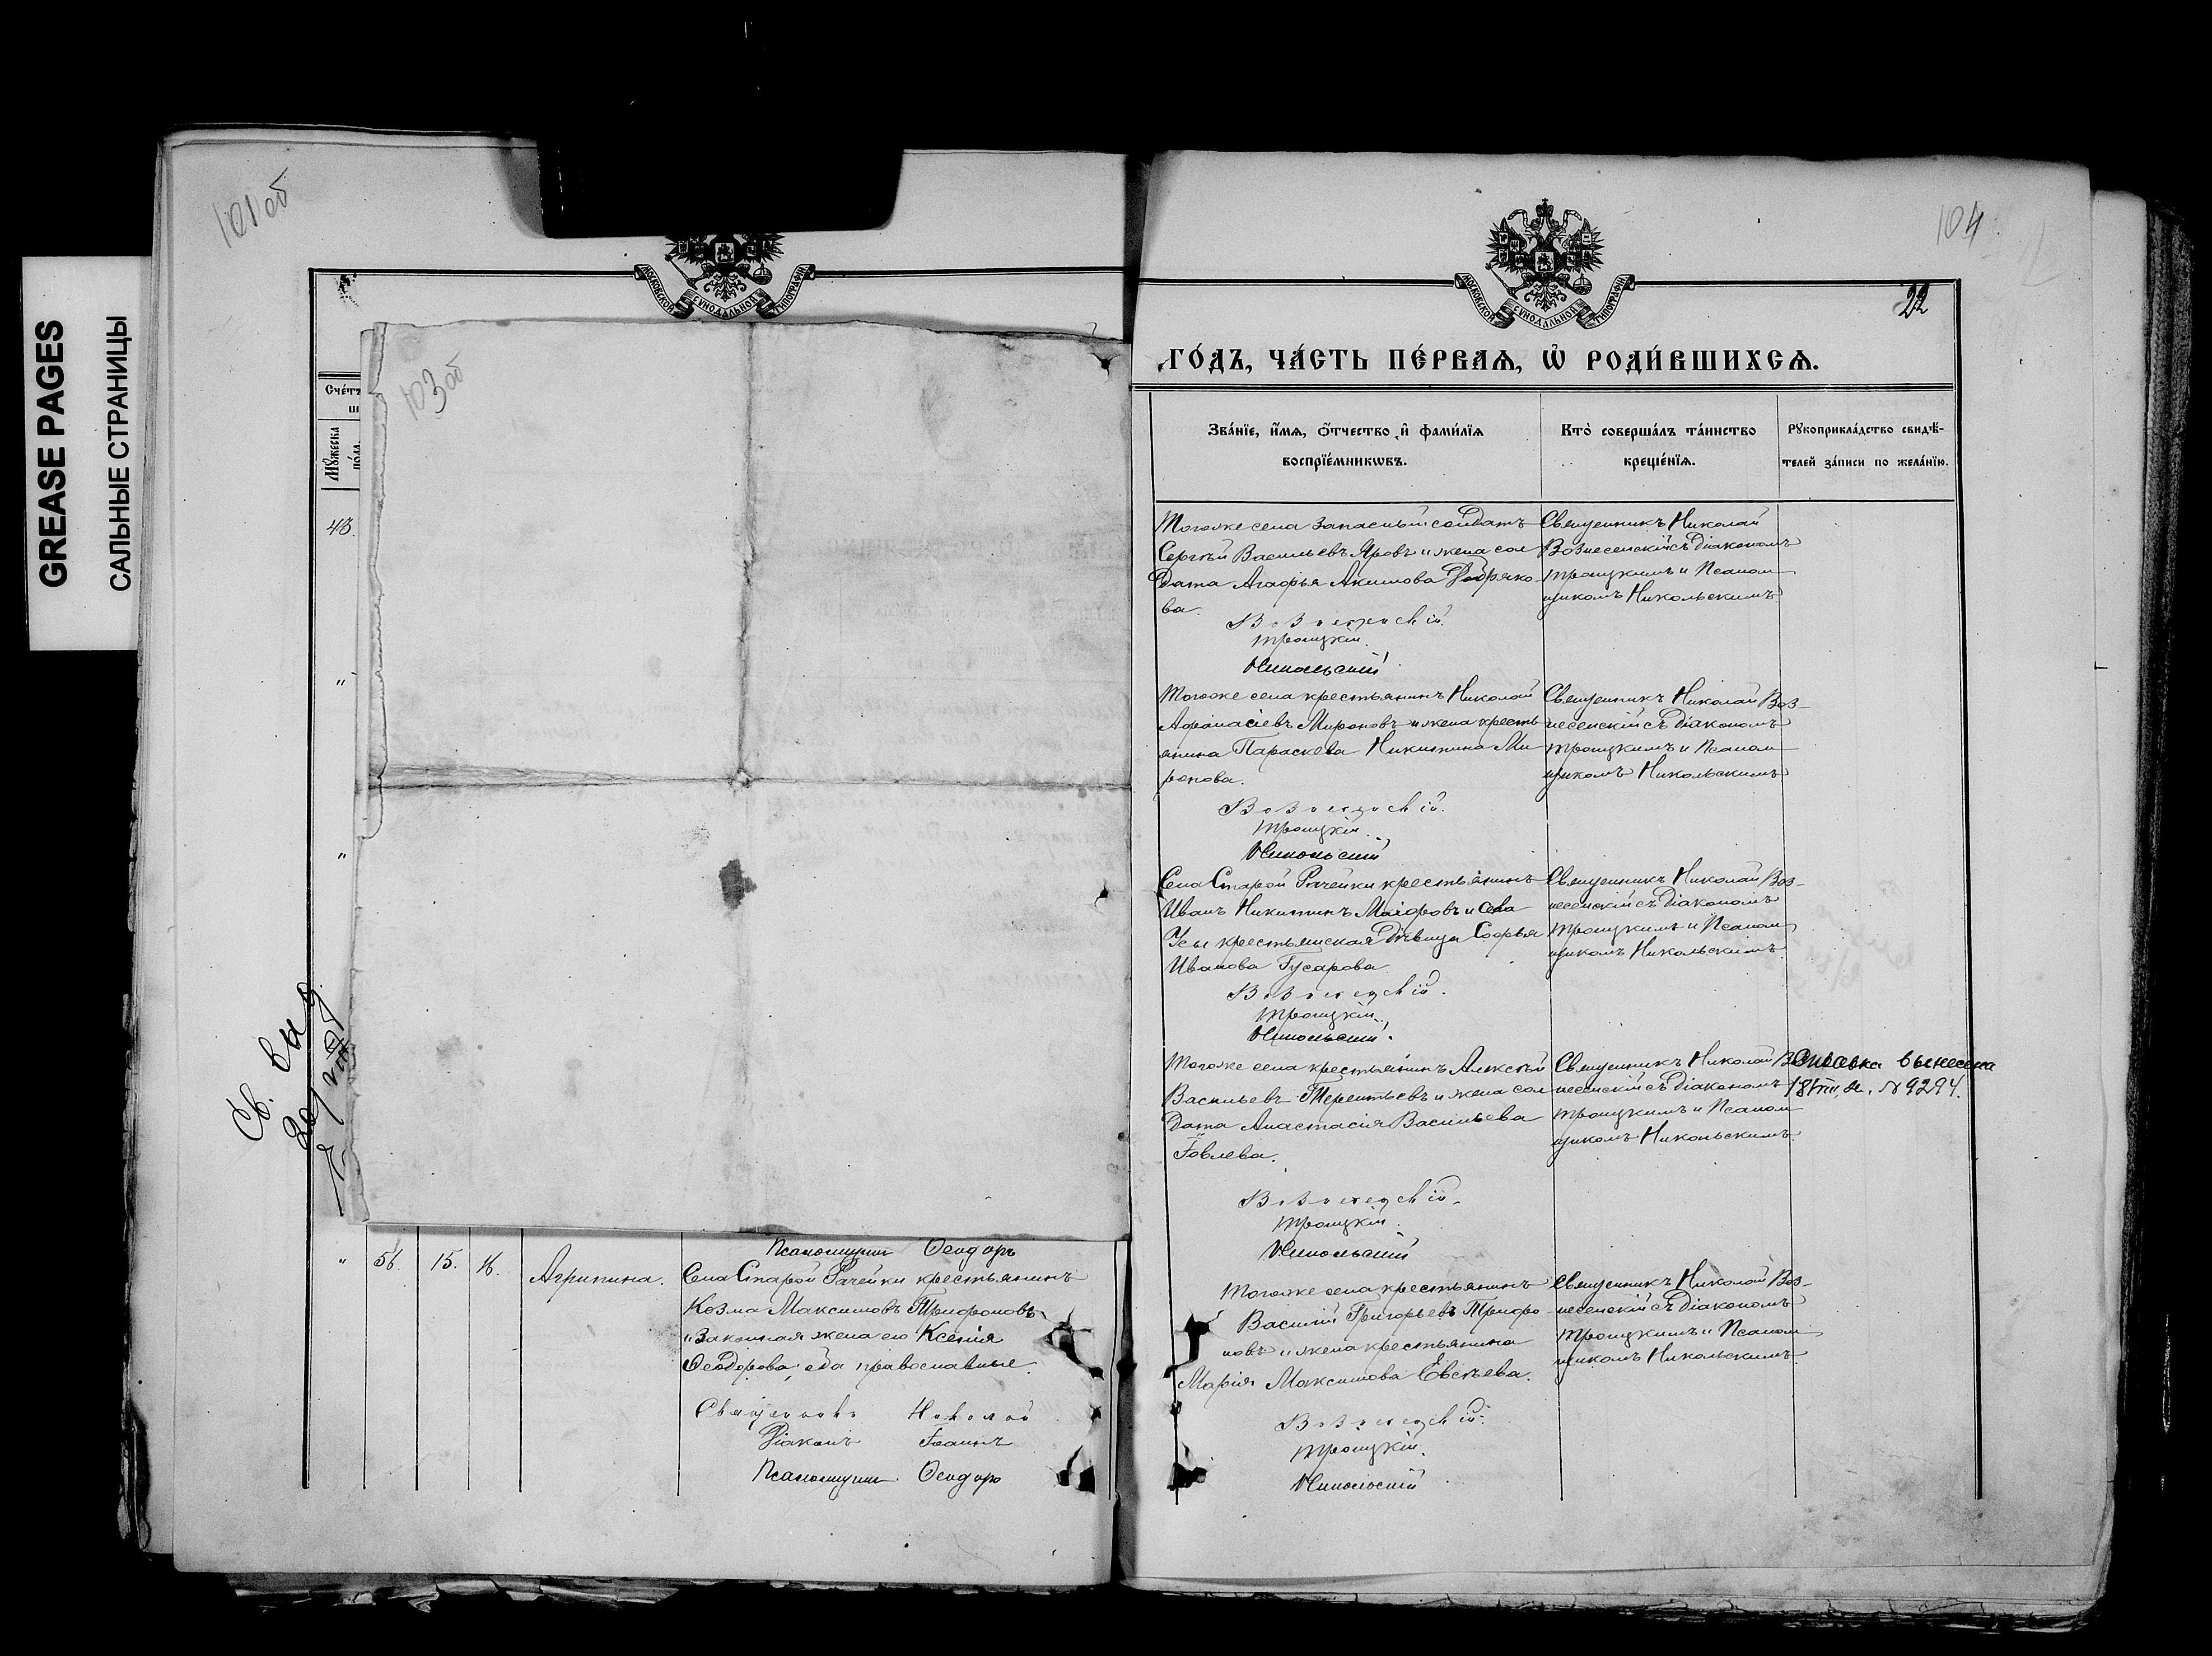 GREASE PAGES
САЛЬНЫЕ СТРАНИЦЫ
101 об
МОСКОВСКОЙ СѴНОДАЛЬНОЙ ТИПОГРАФІИ
103 об
Счетъ
Мужеска
пола
43.
"
"
Св. выд.
Псаломщикъ Ѳеодоръ
" 56. 15. 16. Агрипина. Села Старой Рачейки крестьянинъ
Козма Максимовъ Трифоновъ
и законная жена его Ксенія
Ѳеодорова, оба православные.
Священникъ Николай
Діаконъ Іоаннъ
Псаломщикъ Ѳеодоръ
104
МОСКОВСКОЙ СѴНОДАЛЬНОЙ ТИПОГРАФІИ
22
ГО́ДЪ, ЧА́СТЬ ПЕ́РВАѦ, Ѡ҆ РОДИ́ВШИХСѦ.
Зва́нїе, и҆́мѧ, ѻ҆́тчество и҆ фами́лїѧ
воспрїе́мникѡвъ.
Кто̀ соверша́лъ та́инство
креще́нїѧ.
Рꙋкоприкла́дство свидѣ́-
телей за́писи по жела́нїю.
Тогоже села запасный солдатъ
Сергѣй Васильевъ Яровъ и жена сол
дата Агафья Акимова
ва.
Вознесенскій.
Троицкій.
Никольскій
Священникъ Николай
Вознесенскій съ Діакономъ
Троицкимъ и Псалом
щикомъ Никольскимъ
Тогоже села крестьянинъ Николай
Афонасіевъ Мироновъ и жена кресть
янина Параскева Никитина Ми
ронова.
Вознесенскій.
Троицкій.
Никольскій
Священникъ Николай Воз-
несенскій съ Діакономъ
Троицкимъ и Псалом
щикомъ Никольскимъ
Села Старой Рачейки крестьянинъ
Иванъ Никитинъ Маіоровъ и села
Усы крестьянская дѣвица Софья
Иванова Гусарова.
Вознесенскій.
Троицкій.
Никольскій.
Священникъ Николай Воз-
несенскій съ Діакономъ
Троицкимъ и Псалом
щикомъ Никольскимъ
Тогоже села крестьянинъ Алексѣй
Васильевъ Терентьевъ и жена сол
дата Анастасія Васильева
Іовлева.
Вознесенскій.
Троицкій.
Никольскій
Священникъ Николай Воз
несенскій съ Діакономъ
Троицкимъ и Псалом
щикомъ Никольскимъ.
Справка вынесена
№ 9294.
Тогоже села крестьянинъ
Василій Григорьевъ Трифо
новъ и жена крестьянина
Марія Максимова Евсѣева.
Вознесенскій.
Троицкій.
Никольскій
Священникъ Николай Воз-
несенскій съ Діакономъ
Троицкимъ и Псалом
щикомъ Никольскимъ